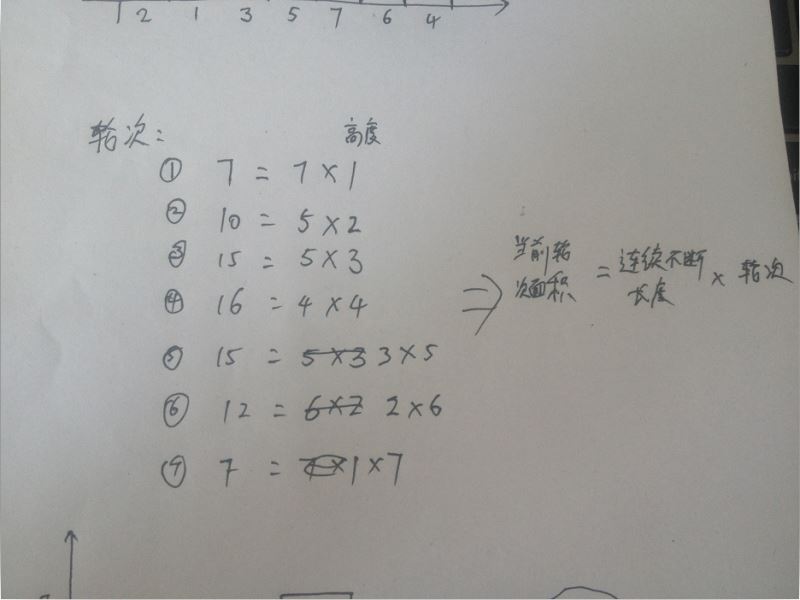 2 1 3 5 7 6 4
轮次： 高度
① 7 = 7×1
② 10 = 5×2
③ 15 = 5×3
④ 16 = 4×4
⑤ 15 = 5×3 3×5
⑥ 12 = 6×2 2×6
⑦ 7 = 1×7
⇒ 当前轮次面积 = 连续不断长度 × 轮次